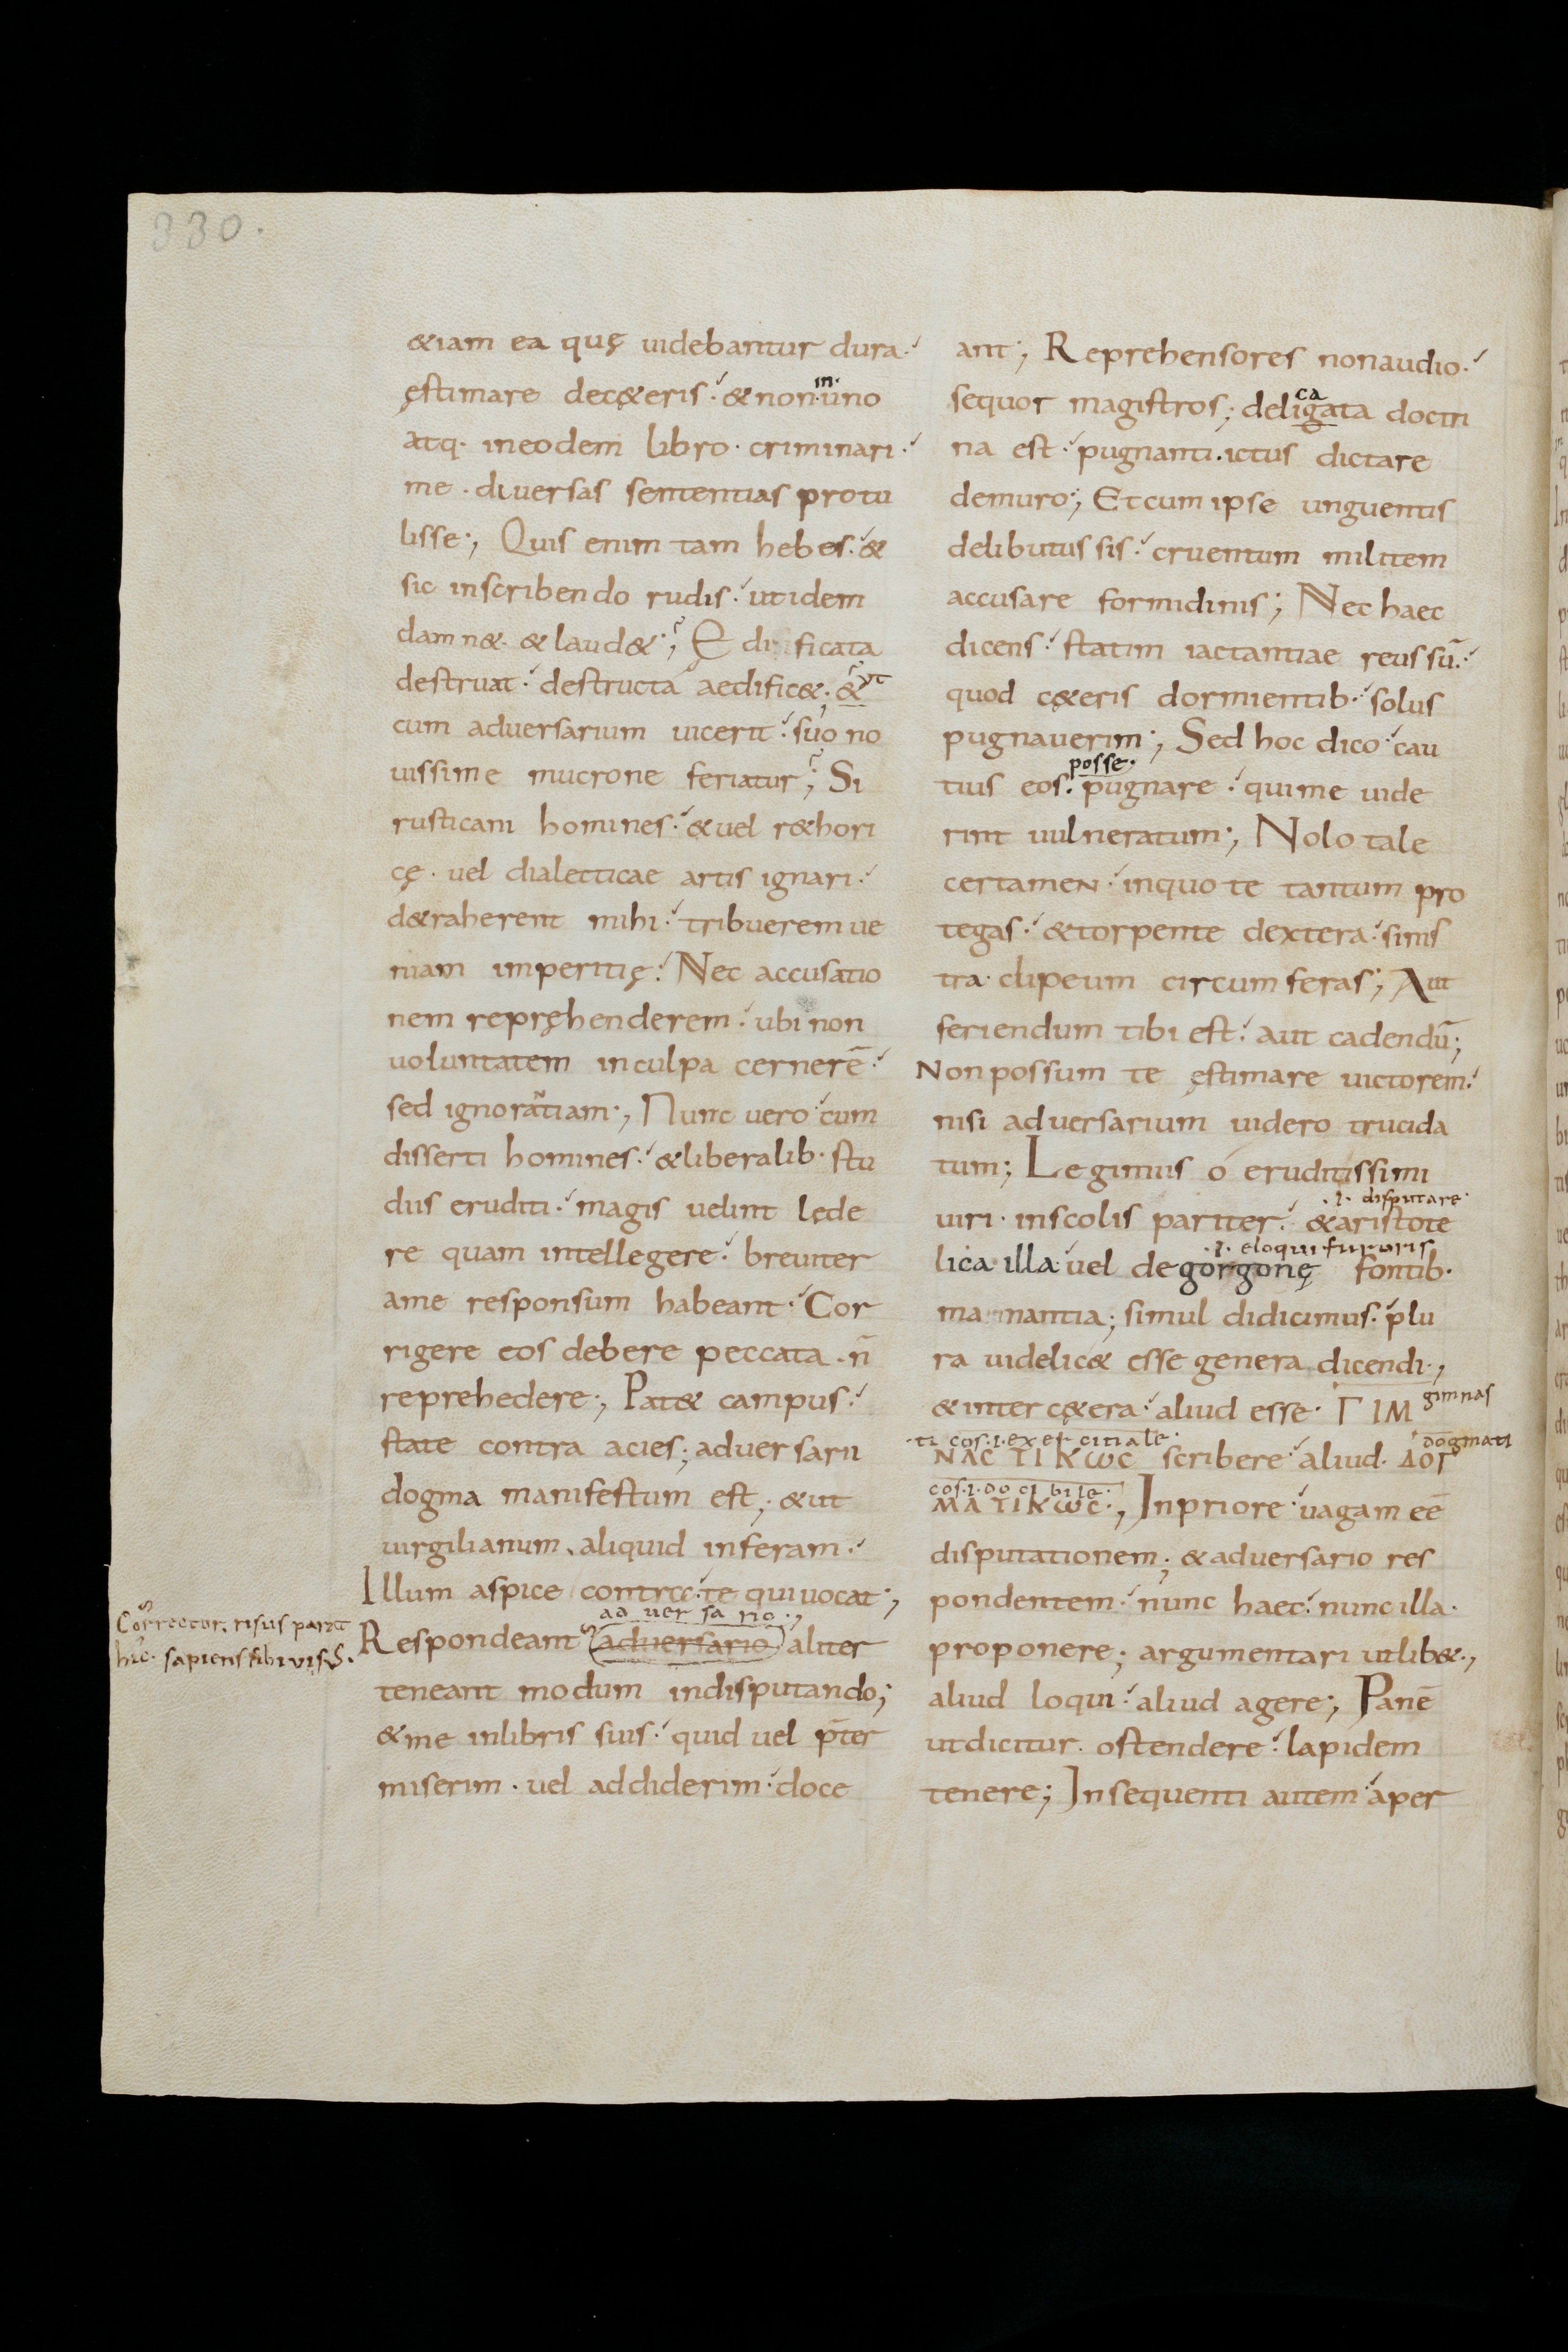 330.
&iam ea quę uidebantur dura.
ęstimare dec&eris. & non uno
in.
atq. ineodem libro. criminari.
me. diuersas sententias protu
lisse; Quis enim tam hebes. &
sic inscribendo rudis. utidem
damn&. & laud&; Ędificata
destruat. destructa aedific&. &
ut
cum aduersarium uicerit. suo no
uissime mucrone feriatur; Si
rusticani homines. & uel r&hori
cę. uel dialetticae artis ignari.
d&raherent mihi. tribuerem ue
niam imperitię. Nec accusatio
nem repręhenderem. ubi non
uoluntatem inculpa cernerē.
sed ignoratiam; Nunc uero cum
disserti homines. & liberalib. stu
diis eruditi. magis uelint lęde
re quam intellegere. breuiter
ame responsum habeant. Cor
rigere eos debere peccata. n̄
reprehedere; Pat& campus.
state contra acies; aduersarii
dogma manifestum est; & ut
uirgilianum. aliquid inferam.
Illum aspice contra te qui uocat;
ad uer sa rio.,
Respondeant aduersario aliter
teneant modum indisputando;
& me inlibris suis. quid uel p̄ter
miserim. uel addiderim. doce
Corrector. risus parat
hic. sapiens sibi uisus.
ant; Reprehensores nonaudio.
sequor magistros; deligata doctri
ca
na est. pugnanti. ictus dictare
demuro; Et cum ipse unguentis
delibutus sis. cruentum militem
accusare formidinis; Nec haec
dicens. statim iactantiae reus sū.
quod cę&eris dormientib. solus
pugnauerim; Sed hoc dico. cau
posse.
tius eos. pugnare. qui me uide
rint uulneratum; Nolo tale
certamen. inquo te tantum pro
tegas. & torpente dextera. sinis
tra. clipeum circumferas; Aut
feriendum tibi est. aut cadendū;
Non possum te ęstimare uictorem.
nisi aduersarium uidero trucida
tum; Legimus o eruditissimi
.i. disputare.
uiri. inscolis pariter. & aristote
.i. eloqui furoris
lica illa uel de gorgonę fontib.
manantia; simul didicimus. plu
ra uidelic& esse genera dicendi.,
& inter cę&era. aliud esse. ΓΙΜ
gimnas
ti cos. i. exercitiale.
ΝΑC ΤΙΚωC scribere. aliud. ΔΟΓ
dogmati
cos. i. do ci bile.
ΜΑΤΙΚωC., Inpriore. uagam eē
disputationem; & aduersario res
pondentem. nunc haec. nunc illa.
proponere; argumentari utlib&.,
aliud loqui. aliud agere; Panē
utdicitur. ostendere. lapidem
tenere; Insequenti autem. aper